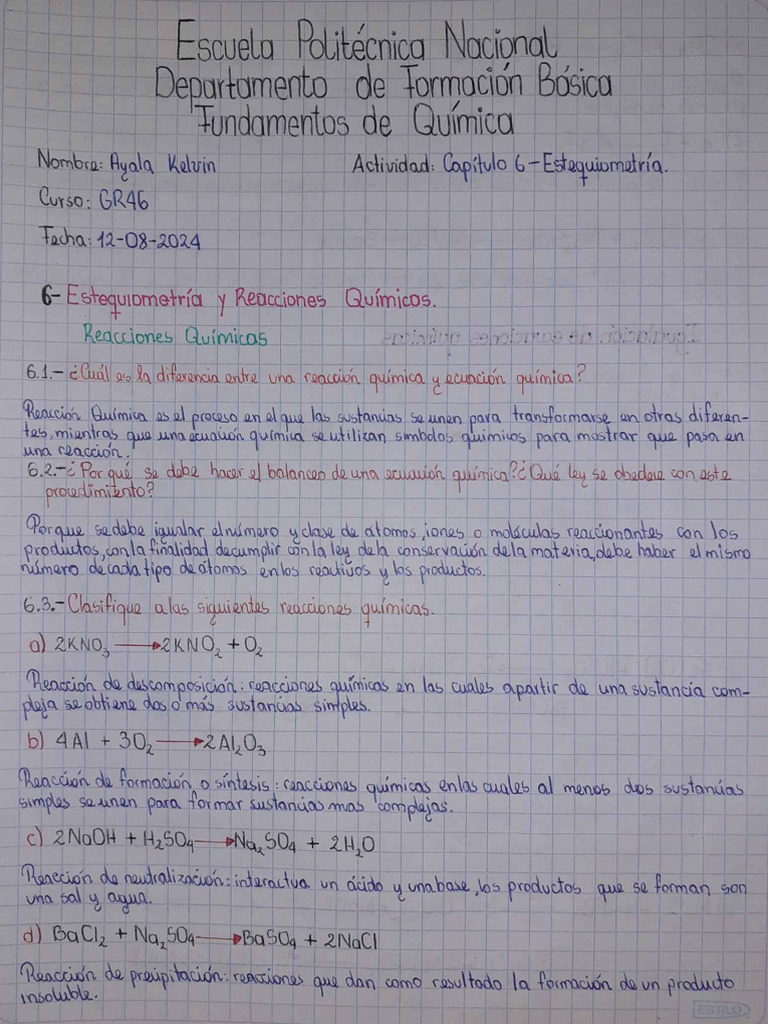 Escuela Politécnica Nacional
Departamento de Formación Básica
Fundamentos de Química
Nombre: Ayala Kelvin Actividad: Capítulo 6-Estequiometría.
Curso: GR46
Fecha: 12-08-2024
6- Estequiometría y Reacciones Químicas.
Reacciones Químicas
6.1.- ¿Cuál es la diferencia entre una reacción química y ecuación química?
Reacción Química es el proceso en el que las sustancias se unen para transformarse en otras diferen-
tes, mientras que una ecuación química se utilizan símbolos químicos para mostrar que pasa en
una reacción.
6.2.- ¿Por qué se debe hacer el balanceo de una ecuación química? ¿Qué ley se obedece con este
procedimiento?
Porque se debe igualar el número y clase de átomos, iones o moléculas reaccionantes con los
productos, con la finalidad de cumplir con la ley de la conservación de la materia, debe haber el mismo
número de cada tipo de átomos en los reactivos y los productos.
6.3.- Clasifique a las siguientes reacciones químicas.
a) 2KNO₃ → 2KNO₂ + O₂
Reacción de descomposición: reacciones químicas en las cuales a partir de una sustancia com-
pleja se obtiene dos o más sustancias simples.
b) 4Al + 3O₂ → 2Al₂O₃
Reacción de formación o síntesis: reacciones químicas en las cuales al menos dos sustancias
simples se unen para formar sustancias mas complejas.
c) 2NaOH + H₂SO₄ → Na₂SO₄ + 2H₂O
Reacción de neutralización: interactua un ácido y una base, los productos que se forman son
una sal y agua.
d) BaCl₂ + Na₂SO₄ → BaSO₄ + 2NaCl
Reacción de precipitación: reacciones que dan como resultado la formación de un producto
insoluble.
ESTILO